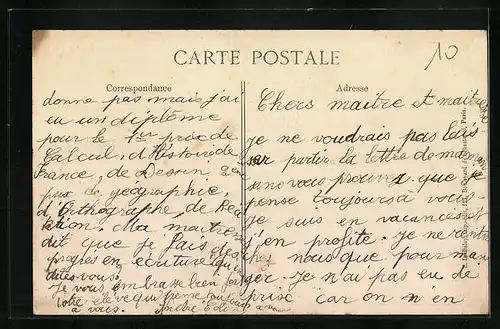 CARTE POSTALE
10
Correspondance
Adresse
Chers maître et maîtresse
je ne voudrais pas lais
ser partir la lettre de maman
sans vous prouver que je
pense toujours à vous.
je suis en vacances et
j'en profite. Je ne rentre
chez nous que pour man
ger. Je n'ai pas eu de
prix car on n en
donne pas mais j'ai
eu un diplôme
pour le 1er prix de
Calcul, d'Histoire de
France, de Dessin, 2em
prix de géographie,
d'Orthographe de Réda
ction. Ma maîtresse
dit que je fais des
progrès en écriture
dites vous. embrasse bien fort
votre élève qui pense toujours
à vous. André